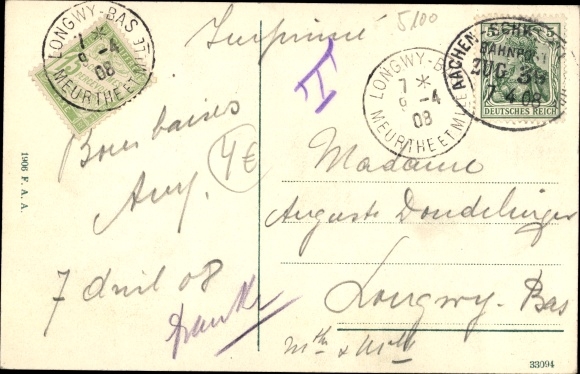 LONGWY-BAS
7
9 -4
08
MEURTHE ET M
Imprimé
5100
T
LONGWY-BAS
7 *
9 -4
08
MEURTHE ET M
AACHEN
BAHNPOST
ZUG 39
7.4.08
DEUTSCHES REICH
1906 F. A. A.
Bons baises
4€
Any.
7 avril 08
Madame
Auguste Dondelinger
Longwy-Bas
Mthe & Mlle
33094